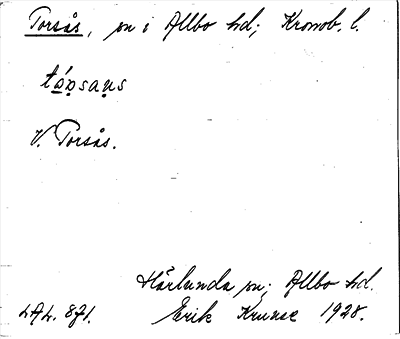 Torsås, sn i Allbo hd; Kronob. l.
tó̲ṇsaṇs
V. Torsås.
Härlunda sn; Allbo hd.
LAL. 871. Erik Kruuse 1928.